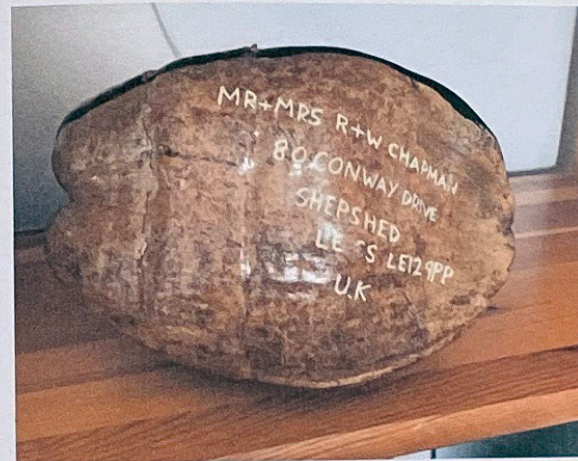 MR+MRS R+W CHAPMAN
80 CONWAY DRIVE
SHEPSHED
LE12 9PP
U.K